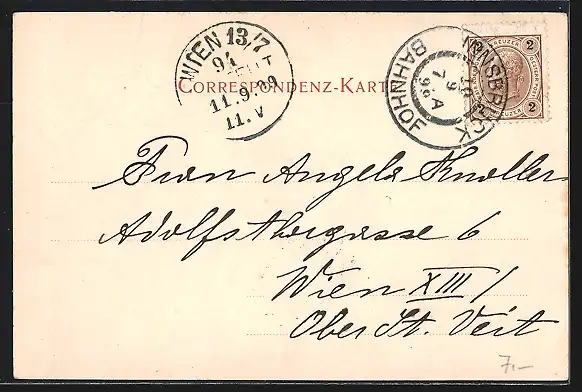 WIEN 13/7
94
11.9.99
11.V
CORRESPONDENZ-KART
INNSBRUCK
10
7
9
99 A
BAHNHOF
2 KREUZER 2
2 KREUZER 2
Frau Angela Knoller
Adolfsthorgasse 6
Wien XIII/
Ober St. Veit
7.-